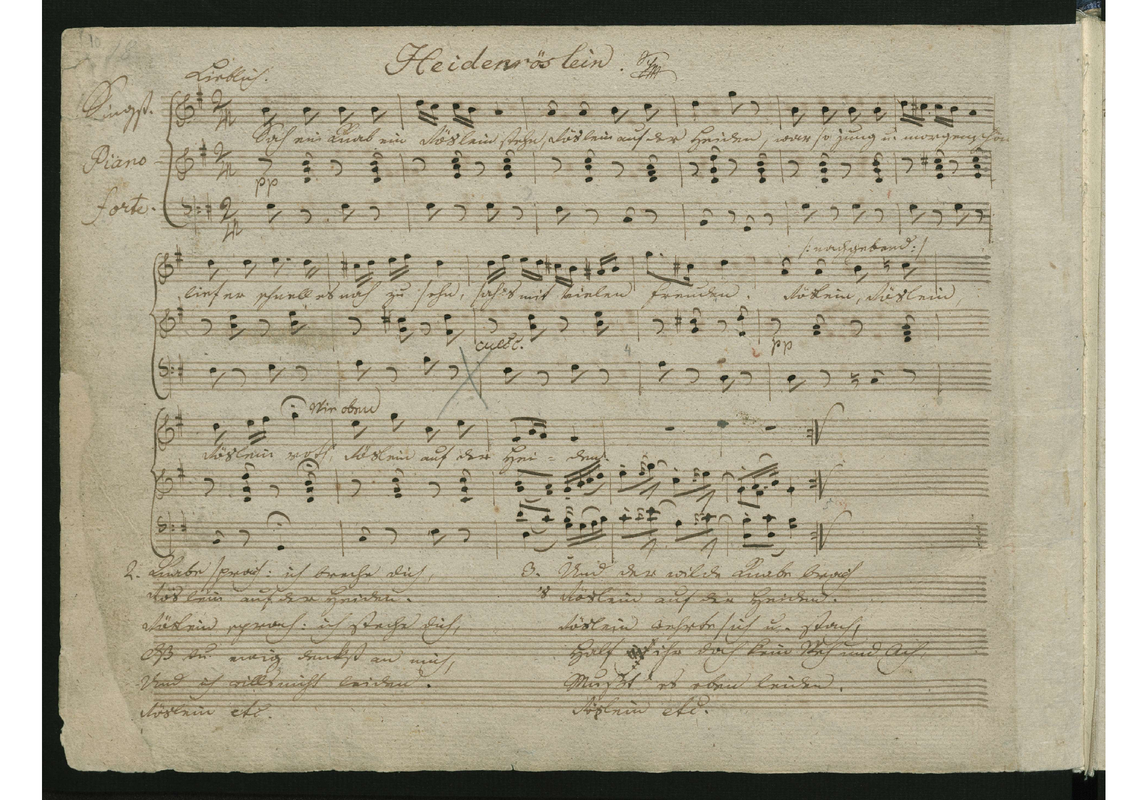 10
Heidenröslein.
Lieblich.
Singst.
Sah ein Knab ein Röslein stehn, Röslein auf der Heiden, war so jung u morgenschön
Piano
pp
forte.
/: nachgebend :/
lief er schnell es nah zu sehn, sah's mit vielen freuden. Röslein, Röslein,
cresc.
pp
Wie oben
Röslein roth Röslein auf der Hei - den.
2. Knabe sprach: ich breche dich,
Röslein auf der Heiden.
Röslein sprach: ich steche dich,
Daß du ewig denkst an mich,
Und ich will's nicht leiden.
Röslein etc.
3. Und der wilde Knabe brach
's Röslein auf der Heiden.
Röslein wehrte sich u. stach,
Half ihr doch kein Weh und Ach,
Mußt' es eben leiden.
Röslein etc.